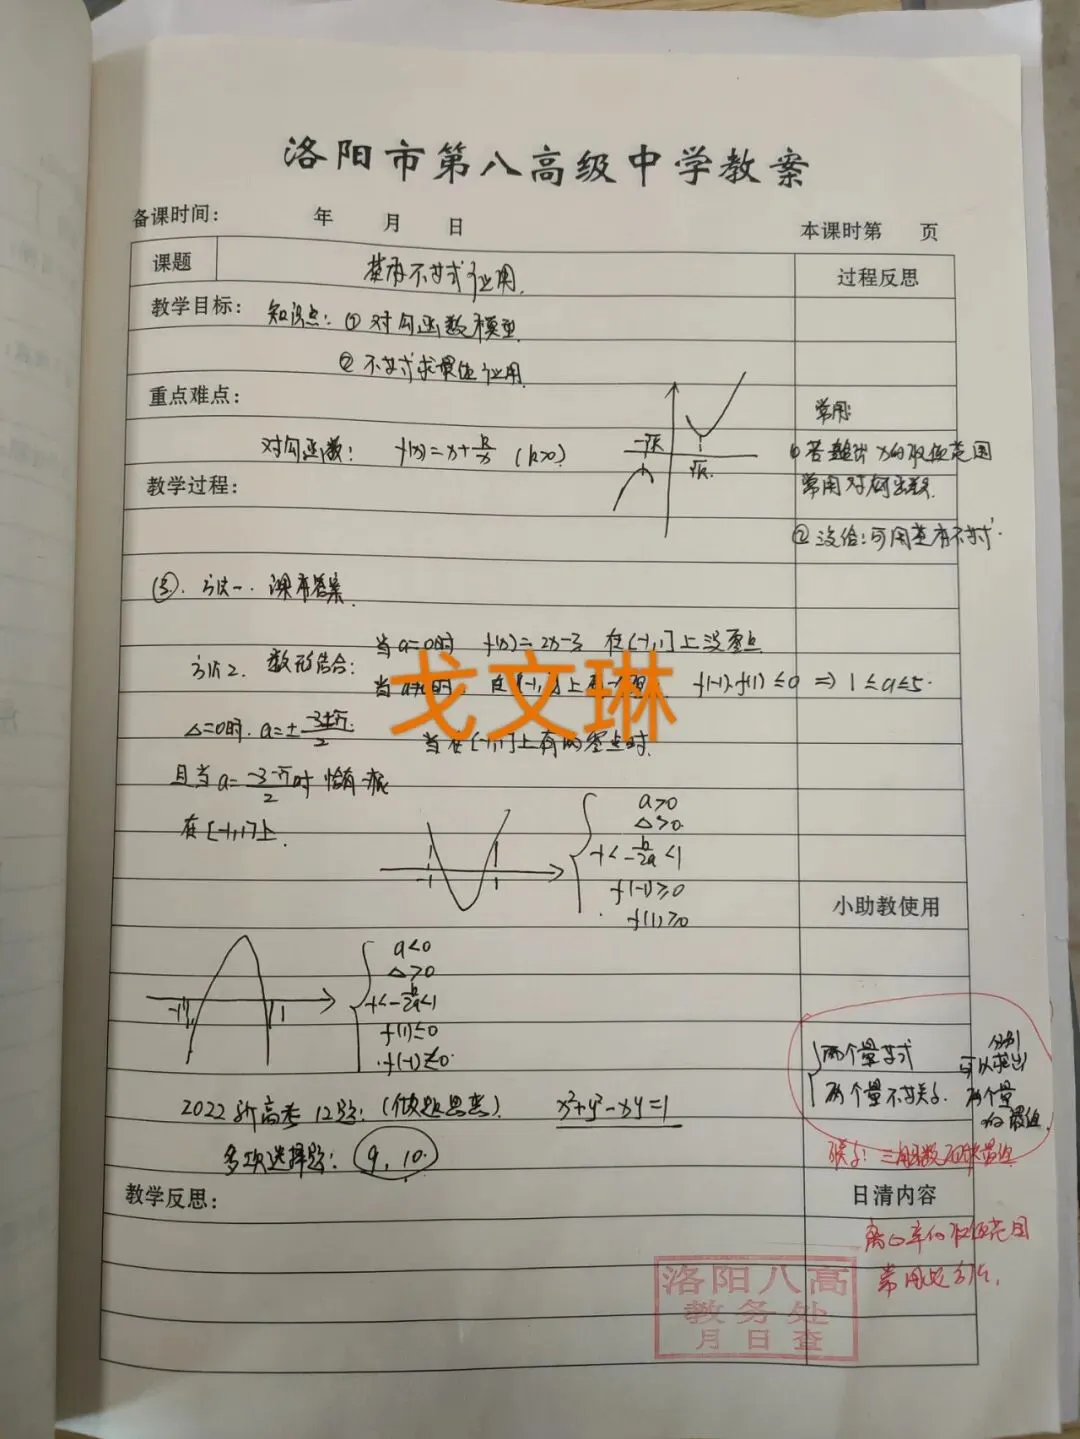 洛阳市第八高级中学教案
备课时间： 年 月 日 本课时第 页
课题 基本不等式应用. 过程反思
教学目标： 知识点：① 对勾函数模型
② 不等式求最值应用.
重点难点：
对勾函数： f(x)=x+k/x (k>0)
-√k
√k.
常用:
① 若给出 x的取值范围
常用对勾函数.
② 没给:可用基本不等式.
教学过程：
③. 方法一. 课本答案.
方法2. 数形结合：
当 a=0时 f(x)=2x-3 在[-1,1]上没零点
f(-1)·f(1)≤0 ⇒ 1≤a≤5.
戈文琳
△=0时.
当在[-1,1]上有 零点时.
且当 a= 时 恰有一根
在[-1,1]上.
-1 1
a>0
△>0
-1<-b/2a<1
f(-1)≥0
f(1)≥0
小助教使用
-1 1
a<0
△>0
-1<-b/2a<1
f(1)≤0
f(-1)≤0.
两个量等式
两个量不等关系.
分别
可以求出
两个量
的最值.
2022新高考12题： x²+y²-xy=1
多项选择题： 9, 10.
教学反思： 日清内容
离心率的取值范围
常用 方法.
洛阳八高
教务处
月日查